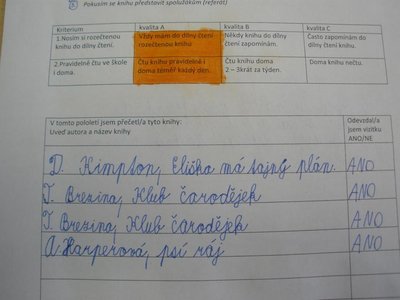 Pokusím se knihu představit spolužákům (referát)
Kriterium kvalita A kvalita B kvalita C
1.Nosím si rozečtenou knihu do dílny čtení. Vždy mám do dílny čtení rozečtenou knihu. Někdy knihu do dílny čtení zapomínám. Často zapomínám do dílny čtení.
2.Pravidelně čtu ve škole i doma. Čtu knihu pravidelně i doma téměř každý den. Čtu knihu doma 2 – 3krát za týden. Doma knihu nečtu.
V tomto pololetí jsem přečetl/a tyto knihy: Odevzdal/a
Uveď autora a název knihy jsem vizitku
ANO/NE
D. Kimpton, Eliška má tajný plán. ANO
T. Brezina, Klub čarodějek ANO
T. Brezina, Klub čarodějek ANO
A. Harperová, psí ráj ANO